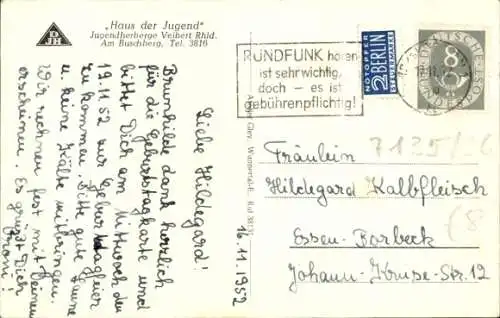 „Haus der Jugend"
Jugendherberge Velbert Rhld.
Am Buschberg, Tel. 3816
DJH
RUNDFUNK hören
ist sehr wichtig,
doch – es ist
gebührenpflichtig!
NOTOPFER
2 BERLIN
STEUERMARKE
DEUTSCHE
BUNDESPOST
8
16.11.1952
Liebe Hildegard!
Brunhilde dankt herzlich
für die Geburtstagkarte und
bittet Dich am Mittwoch den
19.11.52 zur Geburtstagfeier
zu kommen. Bitte gute Laune
u. keine Kälte mitbringen.
Wir rechnen fest mit Deinem
erscheinen. Es grüßt Dich
Fräulein
Hildegard Kalbfleisch
Essen-Borbeck
Johann-Kruse-Str. 12